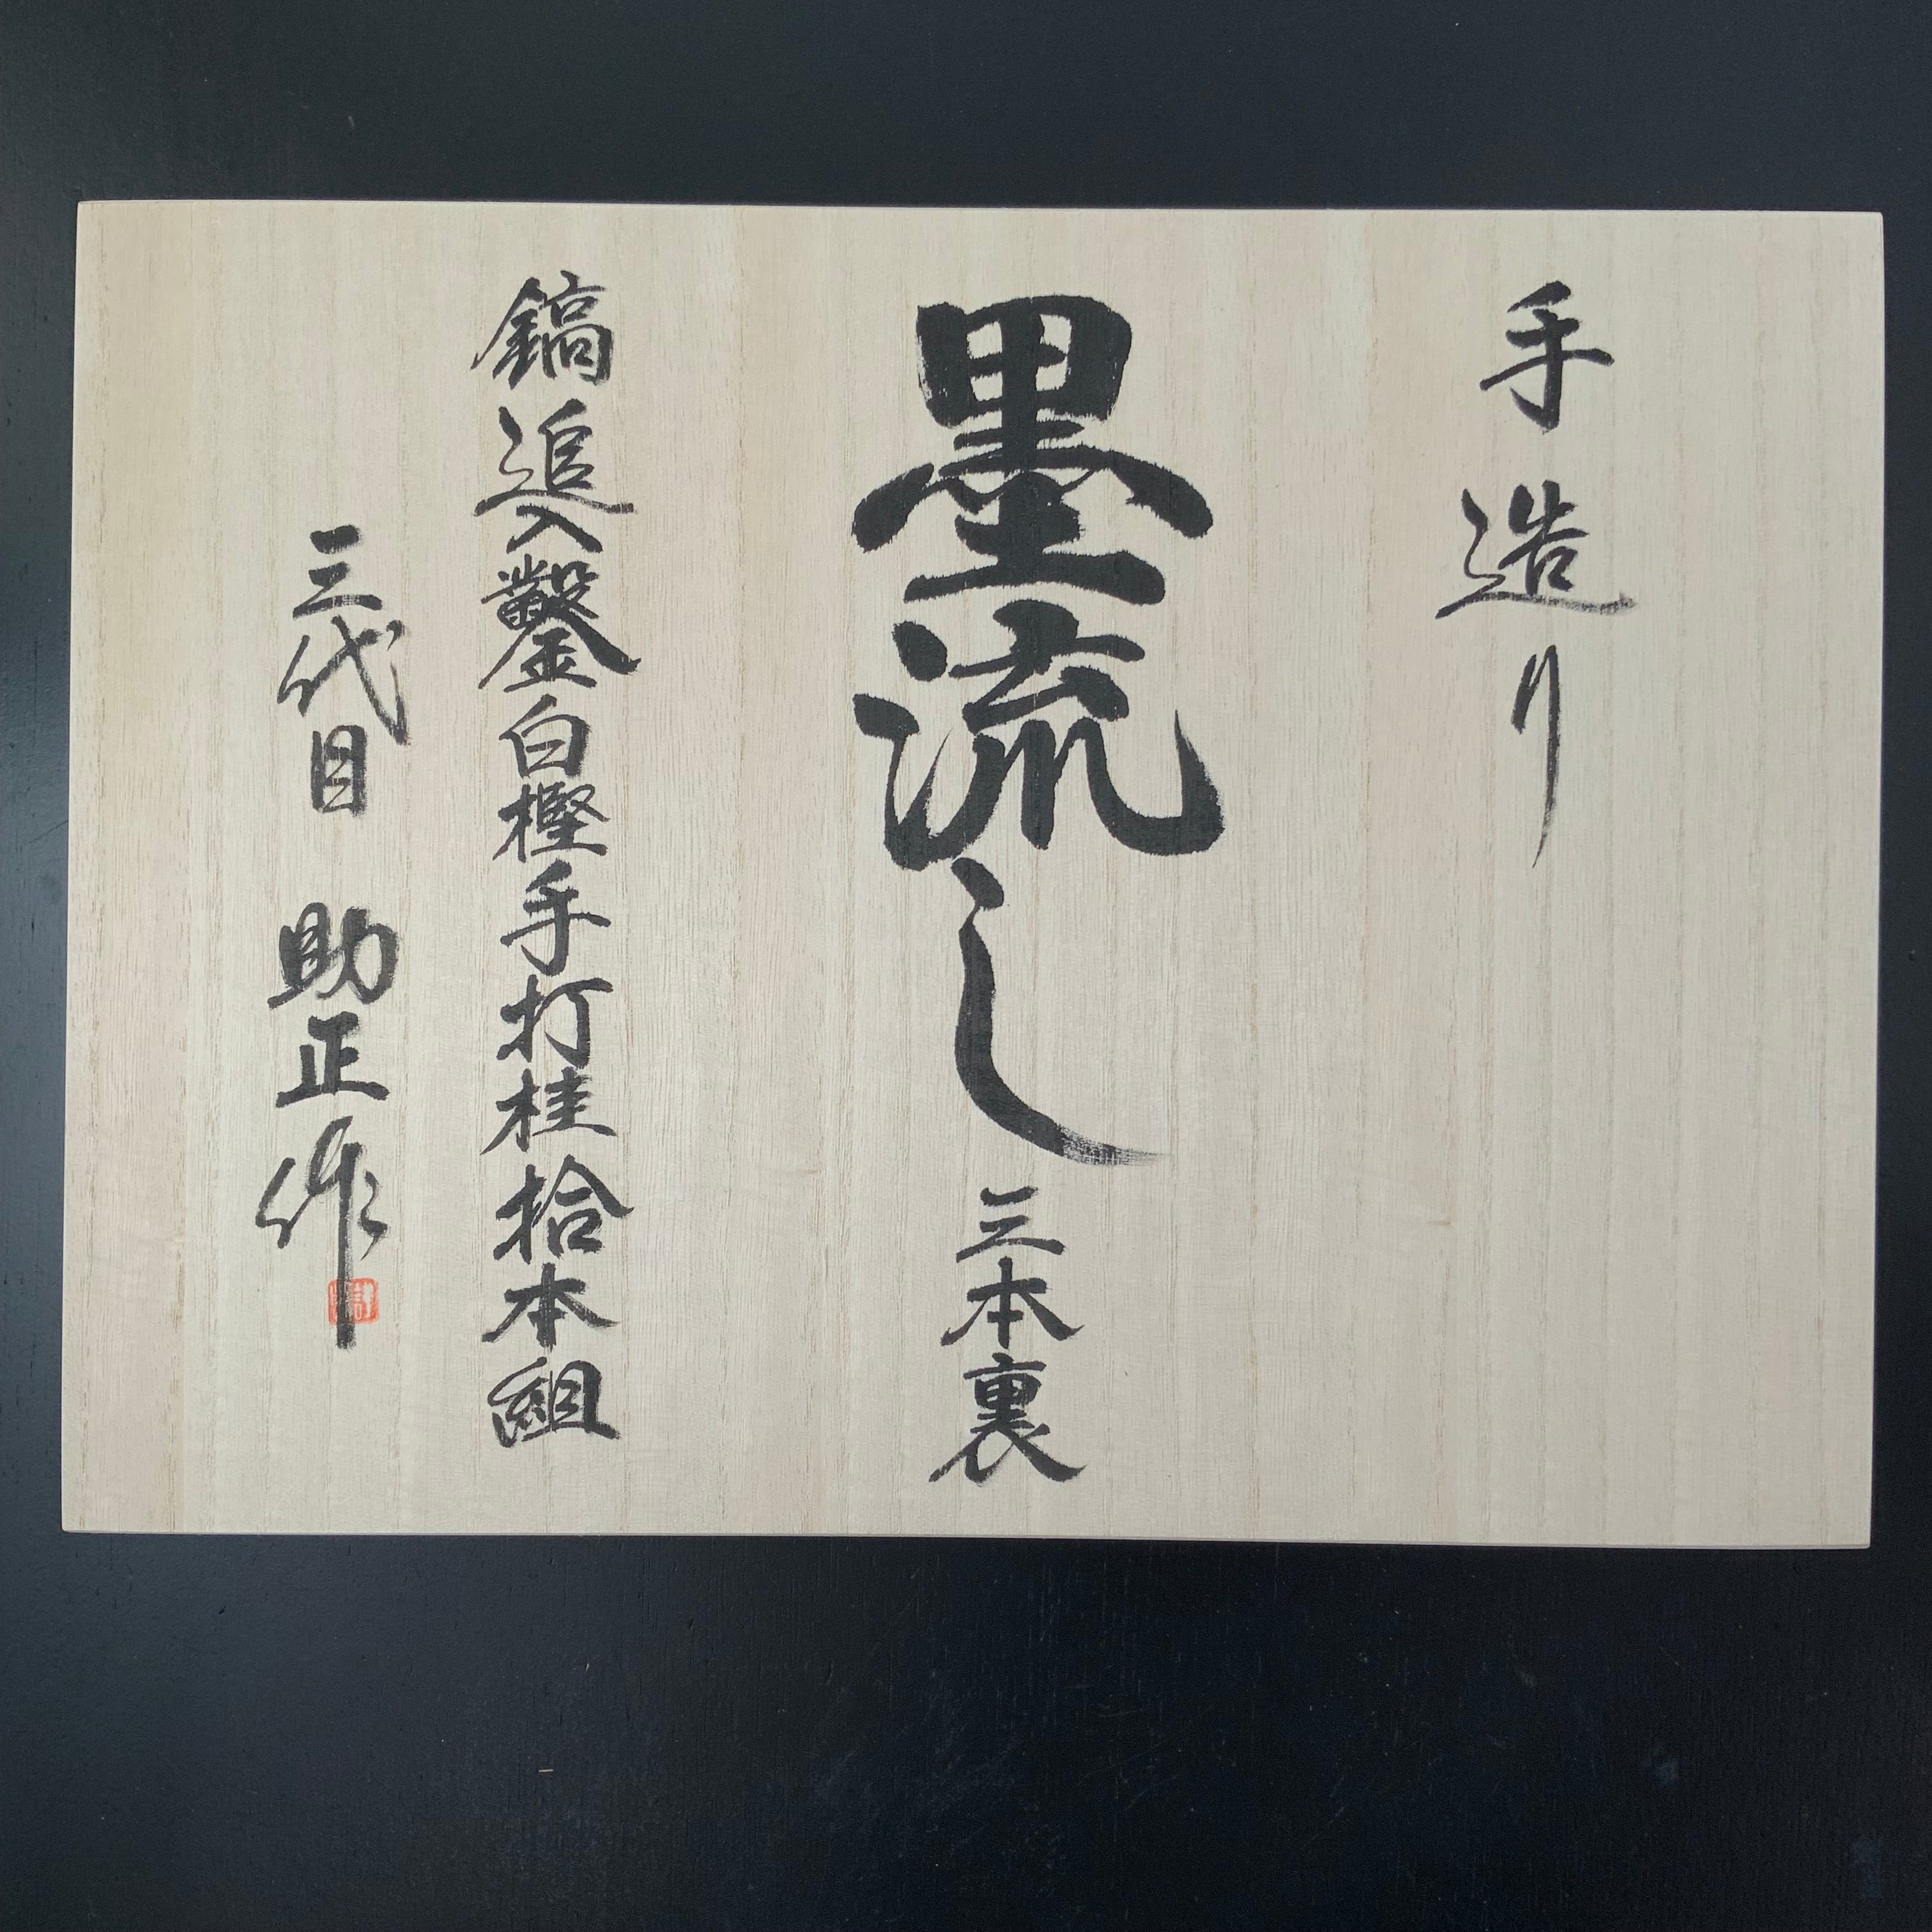 手造り
墨流し三本裏
鎬追入鑿白樫手打桂拾本組
三代目 助正作